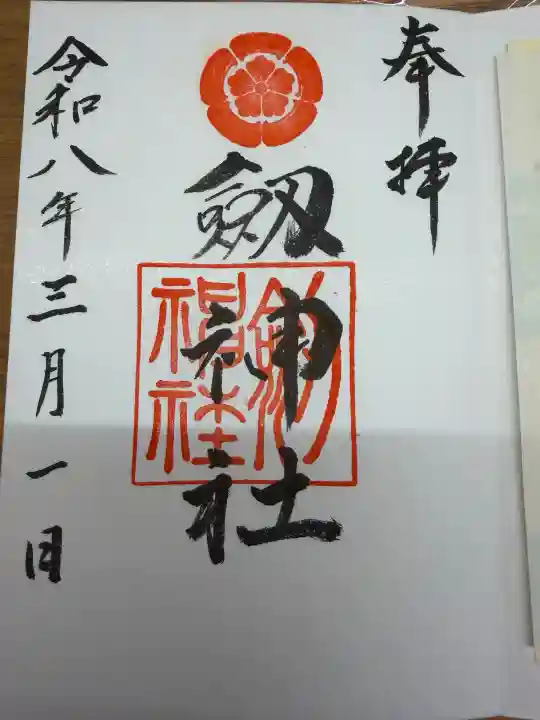 奉拝
劔神社
令和八年三月一日